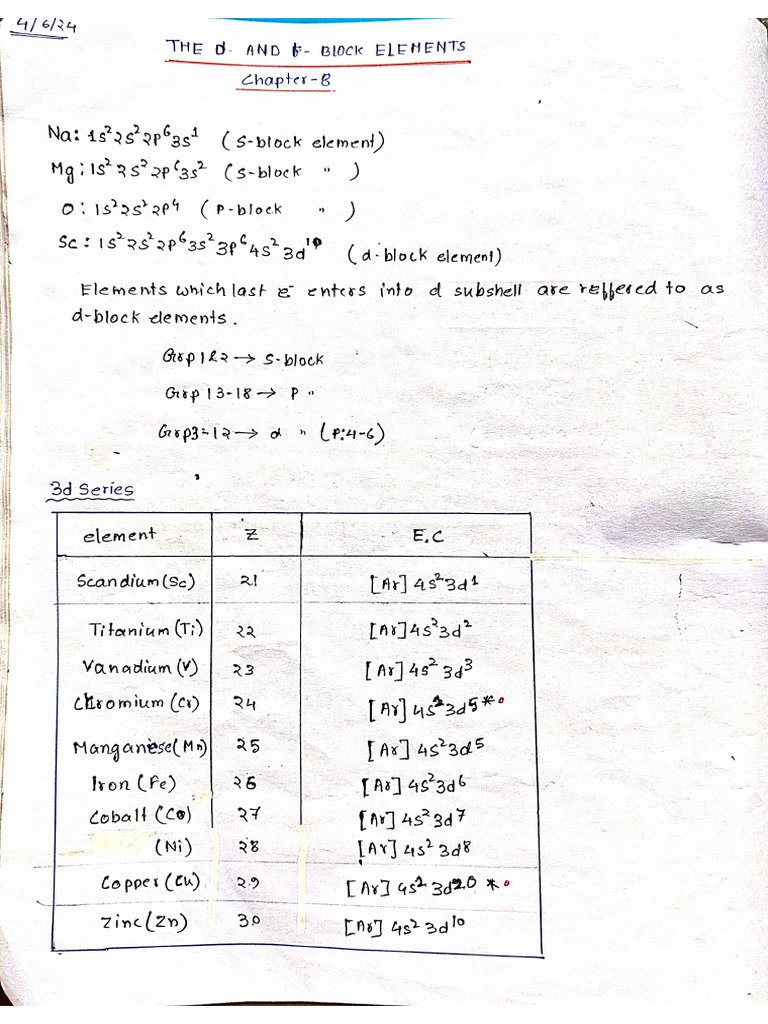 4/6/24
THE d- AND f- BLOCK ELEMENTS
Chapter-8
Na: 1s²2s²2p⁶3s¹ (S-block element)
Mg: 1s²2s²2p⁶3s² (S-block " )
O: 1s²2s²2p⁴ (P-block " )
Sc: 1s²2s²2p⁶3s²3p⁶4s²3d¹ (d-block element)
Elements which last e⁻ enters into d subshell are reffered to as
d-block elements.
Grp 1&2 → S-block
Grp 13-18 → P "
Grp3-12 → d " (P:4-6)
3d Series
element Z E.C
Scandium(Sc) 21 [Ar] 4s²3d¹
Titanium(Ti) 22 [Ar]4s²3d²
Vanadium(V) 23 [Ar]4s²3d³
Chromium(Cr) 24 [Ar] 3d5*
Manganese(Mn) 25 [Ar] 4s²3d⁵
Iron(Fe) 26 [Ar] 4s²3d⁶
Cobalt(Co) 27 [Ar] 4s²3d⁷
(Ni) 28 [Ar] 4s²3d⁸
Copper(Cu) 29 [Ar] *
Zinc(Zn) 30 [Ar] 4s²3d¹⁰